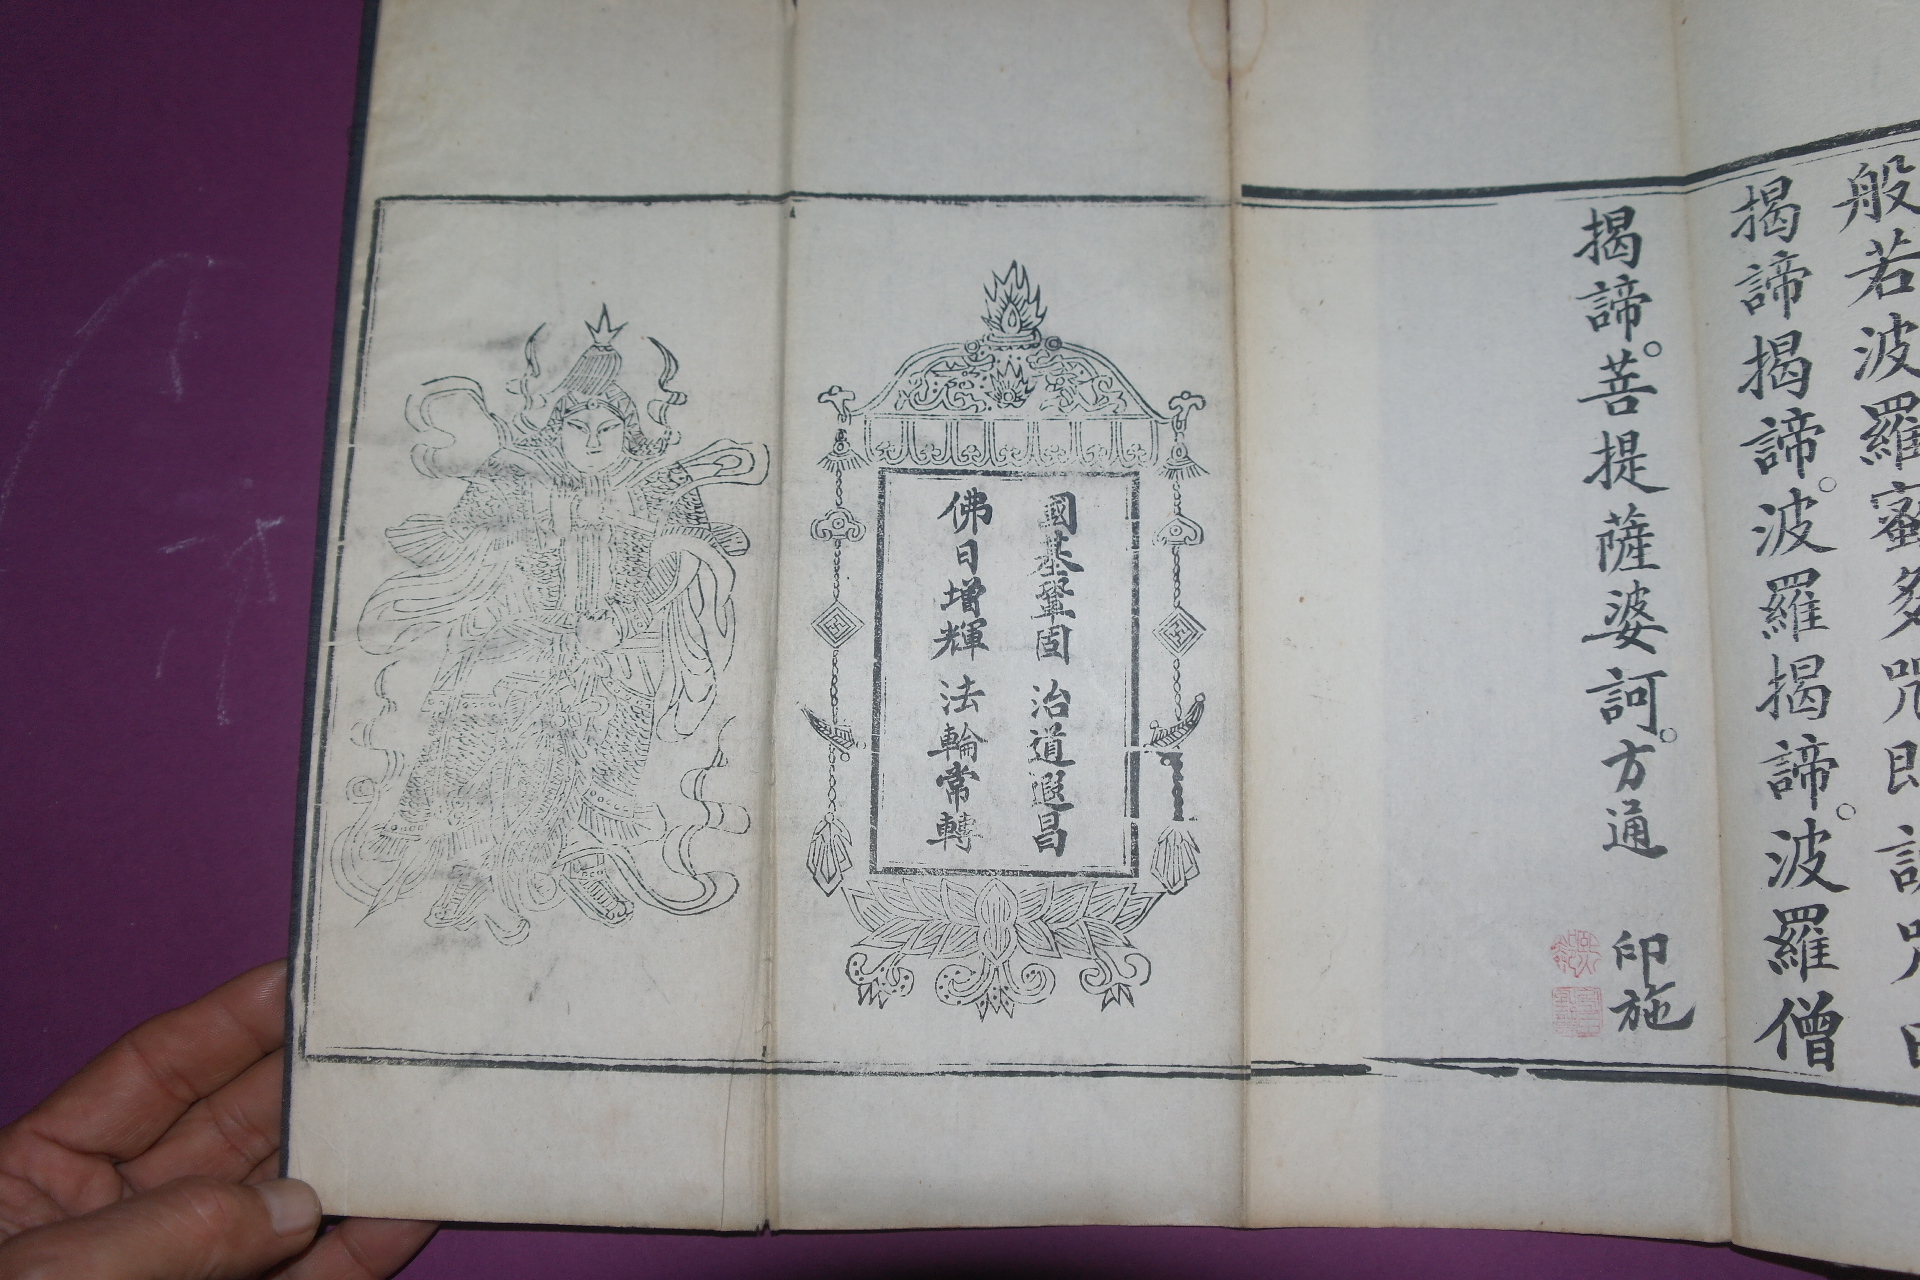 般若波羅蜜多咒即說咒曰
揭諦揭諦。波羅揭諦。波羅僧
揭諦。菩提薩婆訶。方通
印施
國基鞏固 治道遐昌
佛日增輝 法輪常轉